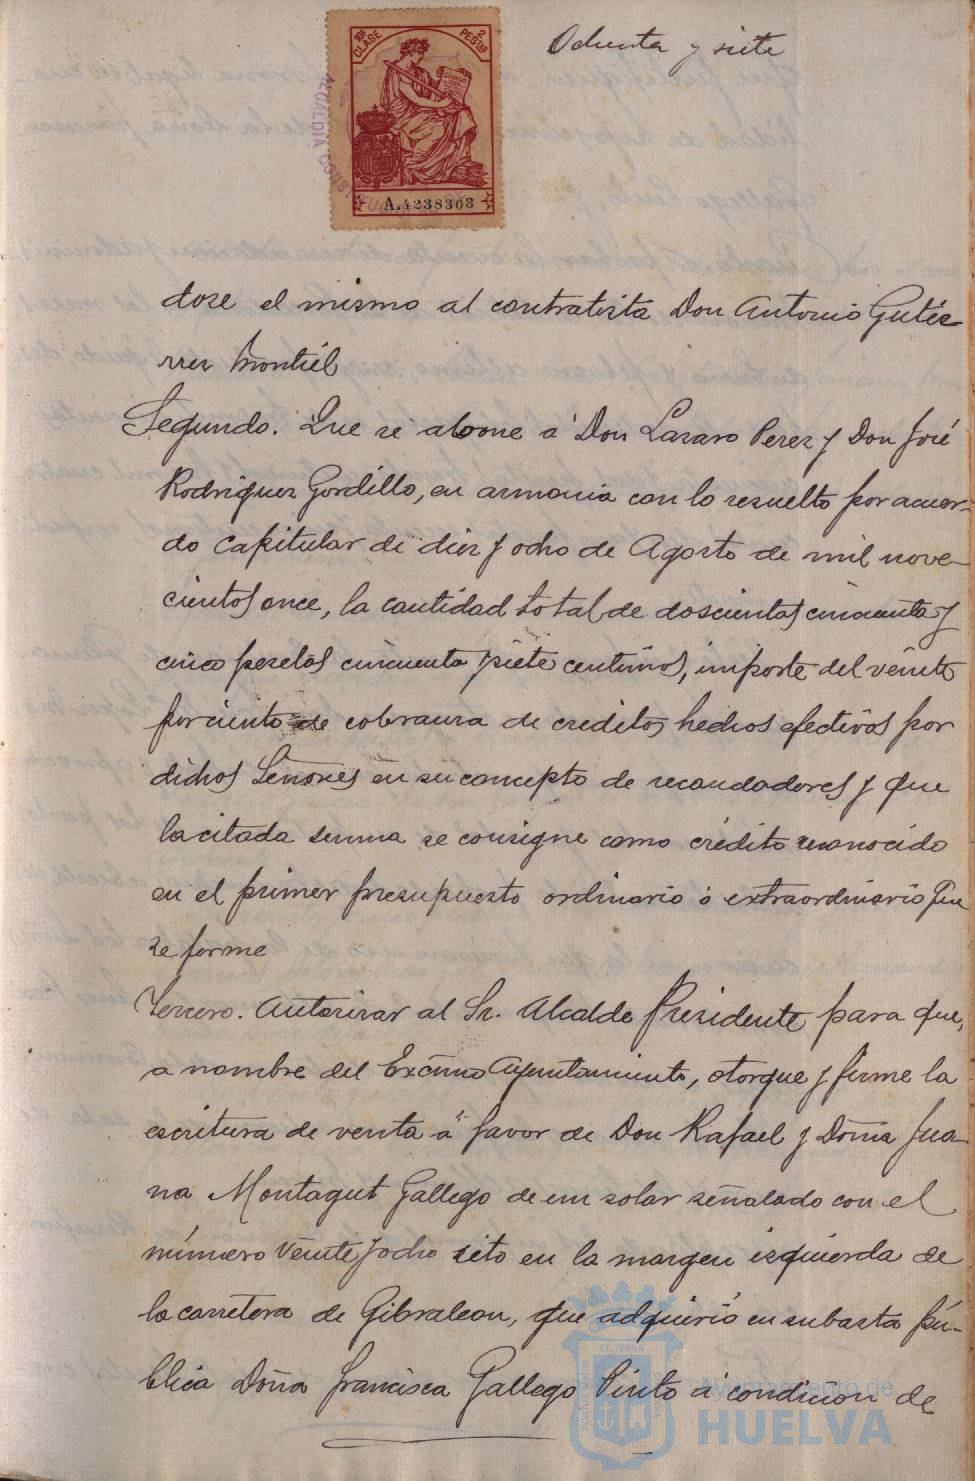 Ochenta y siete
10ª CLASE
2 PESTAS
A.4238303
ALCALDIA
dose el mismo al contratista Don Antonio Gutié-
rrez Montiél
Segundo. Que se abone á Don Lazaro Perez y Don José
Rodriguez Gordillo, en armonia con lo resuelto por acuer-
do capitular de diez y ocho de Agosto de mil nove-
cientos once, la cantidad total de doscientas cincuenta y
cinco pesetas cincuenta y siete centimos, importe del veinte
por ciento de cobranza de creditos hechos efectivos por
dichos Señores en su concepto de recaudadores y que
la citada suma se consigne como crédito reconocido
en el primer presupuesto ordinario ó extraordinario que
se forme
Tercero. Autorizar al Sr. Alcalde Presidente para que,
a nombre del Excmo Ayuntamiento, otorgue y firme la
escritura de venta á favor de Don Rafael y Doña Jua-
na Montagut Gallego de un solar señalado con el
número veinte y ocho sito en la margen izquierda de
la carretera de Gibraleon, que adquirió en subasta pú-
blica Doña Francisca Gallego Pinto á condicion de
Ayuntamiento de
HUELVA